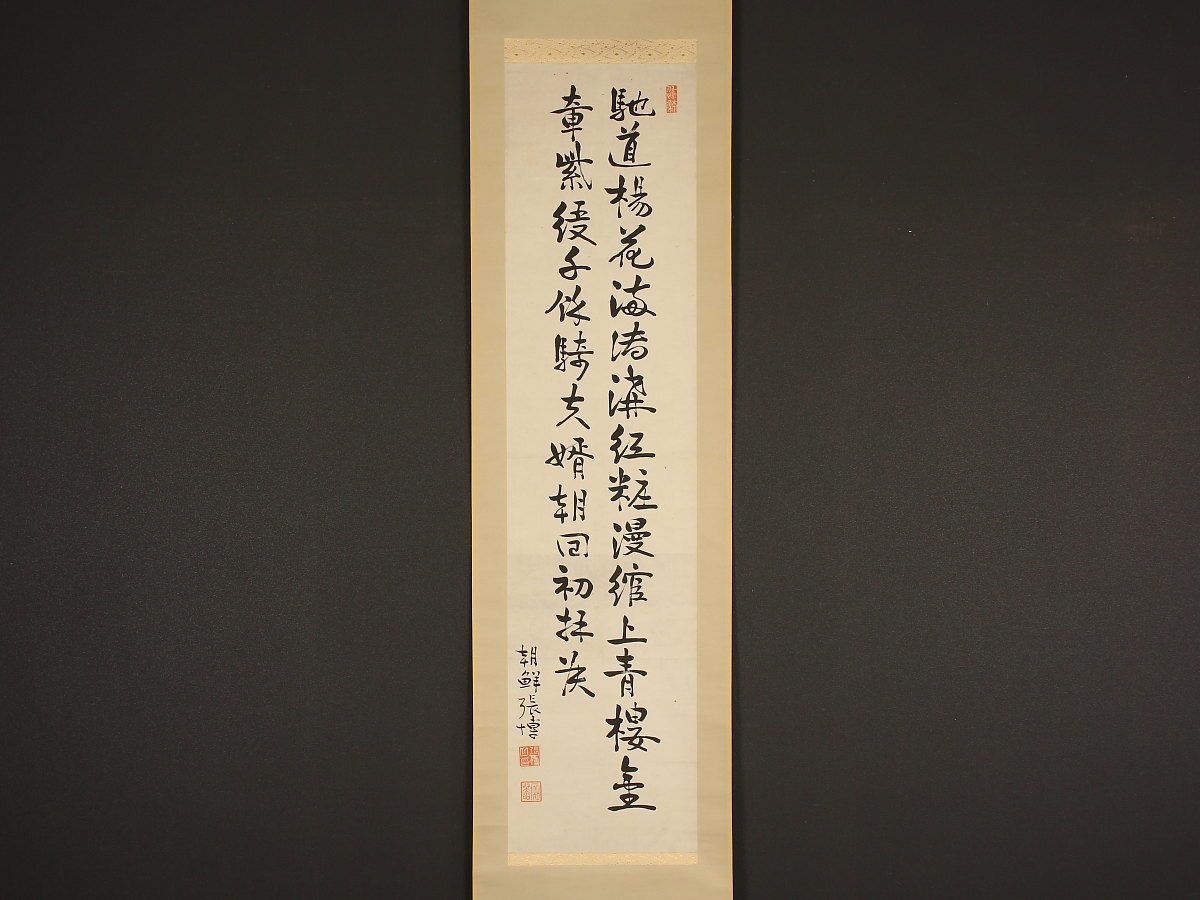 馳道楊花滿御溝紅粧漫綰上青樓金
章紫綬千餘騎夫婿朝回初拜侯
朝鮮張博